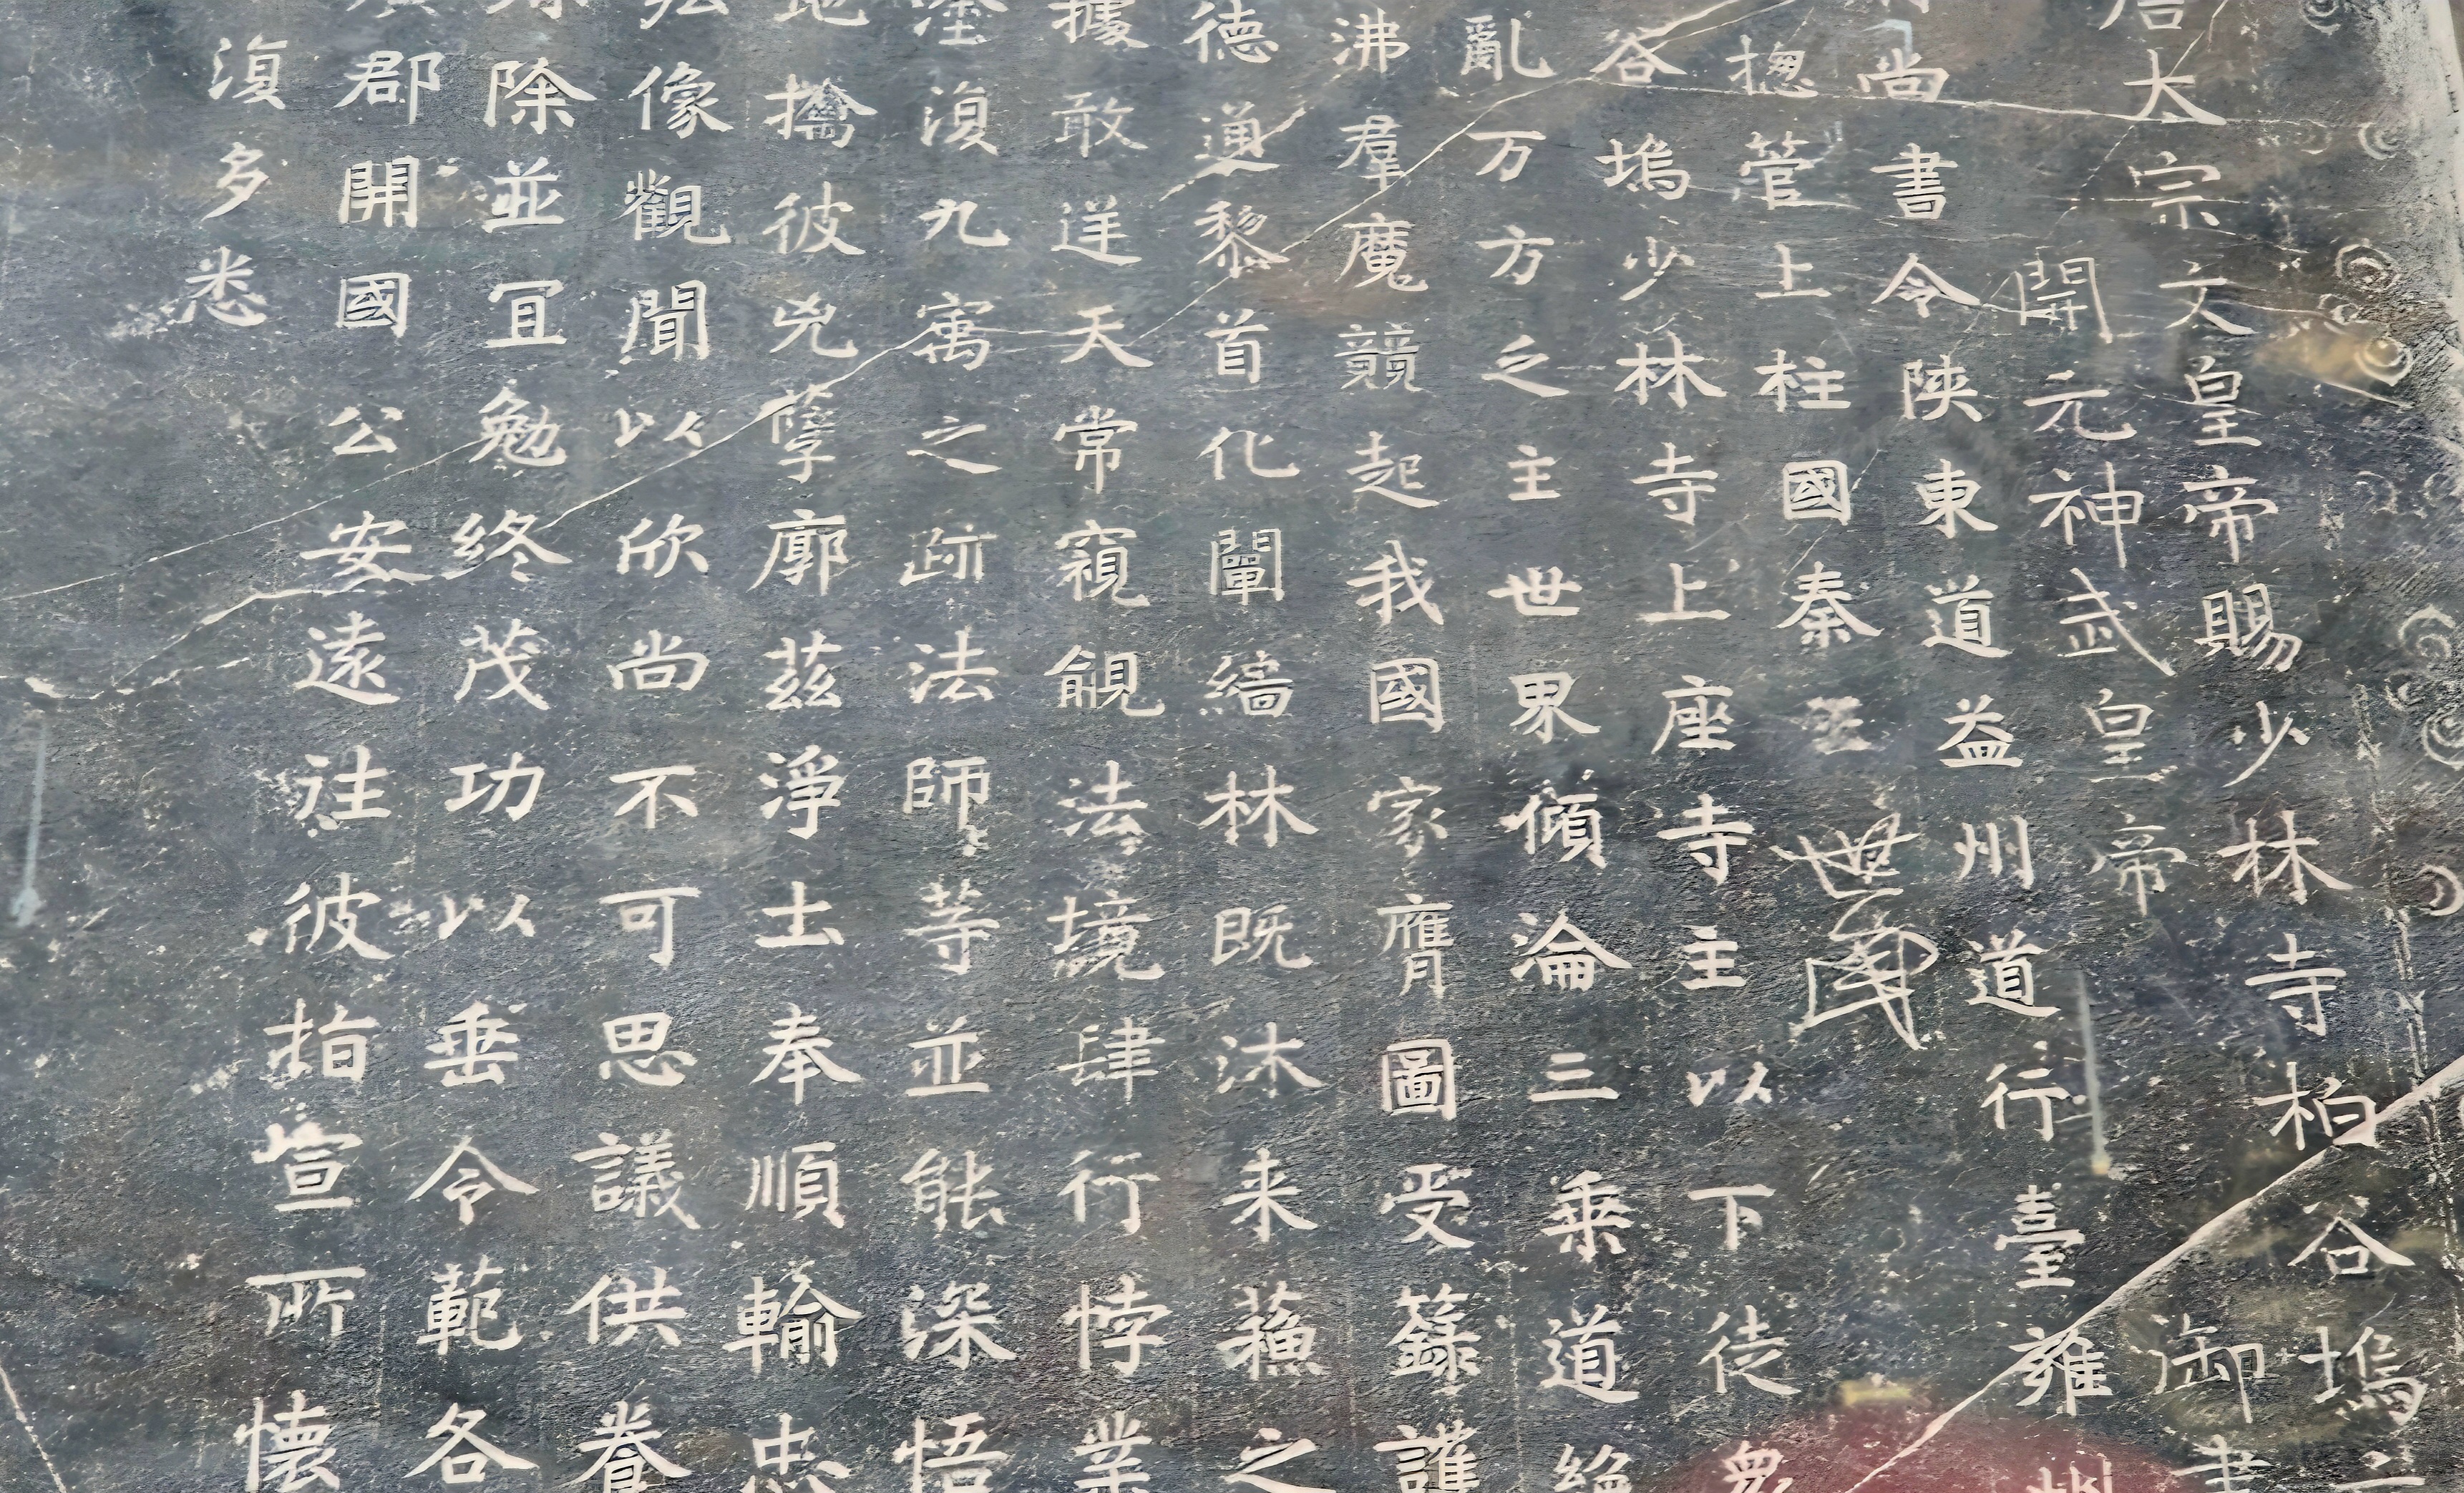 太宗文皇帝賜少林寺柏谷塢
開元神武皇帝御書
尚書令陝東道益州道行臺雍州
揔管上柱國秦王世民
谷塢少林寺上座寺主以下徒衆
亂万方之主世界傾淪三乗道絶
沸羣魔競起我國家膺圖受籙護
德通黎首化闡緇林既沐来蘓之
據敢逆天常窺覦法境肆行悖業
澄湏九㝢之跡法師等並能深悟
地擒彼兇孽廓兹淨土奉順輸忠
像觀聞以欣尚不可思議供養
除並冝勉終茂功以垂令範各
郡開國公安遠往彼指宣所懐
湏多悉